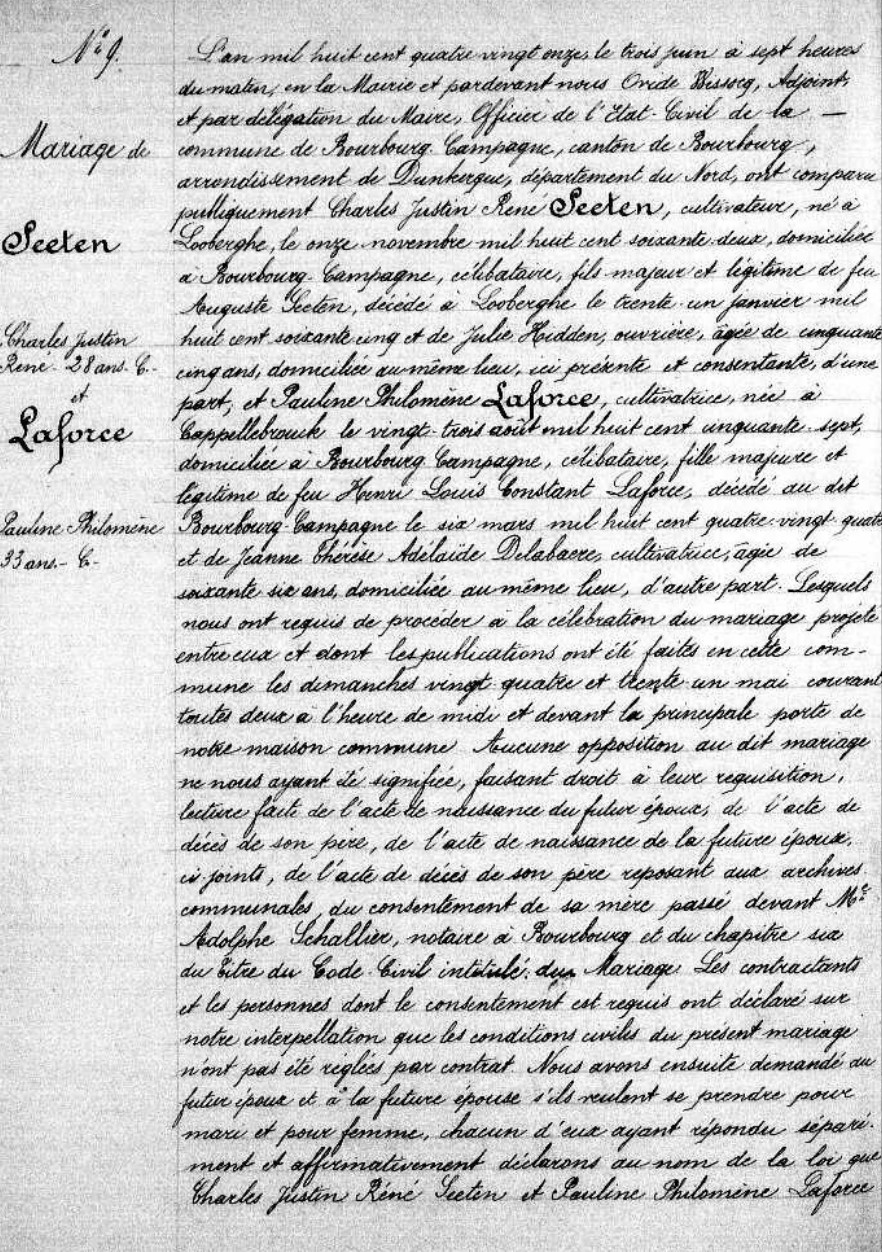 N° 9.
Mariage de
Seeten
Charles Justin
René - 28 ans - C.-
et
Laforce
Pauline Philomène
33 ans - C-
L'an mil huit cent quatre vingt onze, le trois juin à sept heures
du matin, en la Mairie et pardevant nous Ovide Wissocq, Adjoint,
et par délégation du Maire, Officier de l'Etat-Civil de la —
commune de Bourbourg-Campagne, canton de Bourbourg,
arrondissement de Dunkerque, département du Nord, ont comparu
publiquement Charles Justin René Seeten, cultivateur, né à
Looberghe, le onze novembre mil huit cent soixante-deux, domicilié
à Bourbourg-Campagne, célibataire, fils majeur et légitime de feu
Auguste Seeten, décédé à Looberghe le trente-un janvier mil
huit cent soixante cinq et de Julie Hidden, ouvrière, âgée de cinquante
cinq ans, domiciliée au même lieu, ici présente et consentante, d'une
part, et Pauline Philomène Laforce, cultivatrice, née à
Cappellebrouck le vingt-trois août mil huit cent cinquante-sept,
domiciliée à Bourbourg-Campagne, célibataire, fille majeure et
légitime de feu Henri Louis Constant Laforce, décédé au dit
Bourbourg-Campagne le six mars mil huit cent quatre-vingt quatre
et de Jeanne Thérèse Adélaïde Delabaere, cultivatrice, âgée de
soixante six ans, domiciliée au même lieu, d'autre part. Lesquels
nous ont requis de procéder à la célébration du mariage projeté
entre eux et dont les publications ont été faites en cette com-
mune les dimanches vingt-quatre et trente-un mai courant
toutes deux à l'heure de midi et devant la principale porte de
notre maison commune. Aucune opposition au dit mariage
ne nous ayant été signifiée, faisant droit à leur requisition,
lecture faite de l'acte de naissance du futur époux, de l'acte de
décès de son père, de l'acte de naissance de la future époux,
ci-joints, de l'acte de décès de son père reposant aux archives
communales, du consentement de sa mère passé devant Me
Adolphe Schallier, notaire à Bourbourg et du chapitre six
du Titre du Code-Civil intitulé: du Mariage. Les contractants
et les personnes dont le consentement est requis ont déclaré sur
notre interpellation que les conditions civiles du présent mariage
n'ont pas été réglées par contrat. Nous avons ensuite demandé au
futur époux et à la future épouse s'ils veulent se prendre pour
mari et pour femme, chacun d'eux ayant répondu séparé-
ment et affirmativement déclarons au nom de la loi que
Charles Justin Réné Seeten et Pauline Philomène Laforce